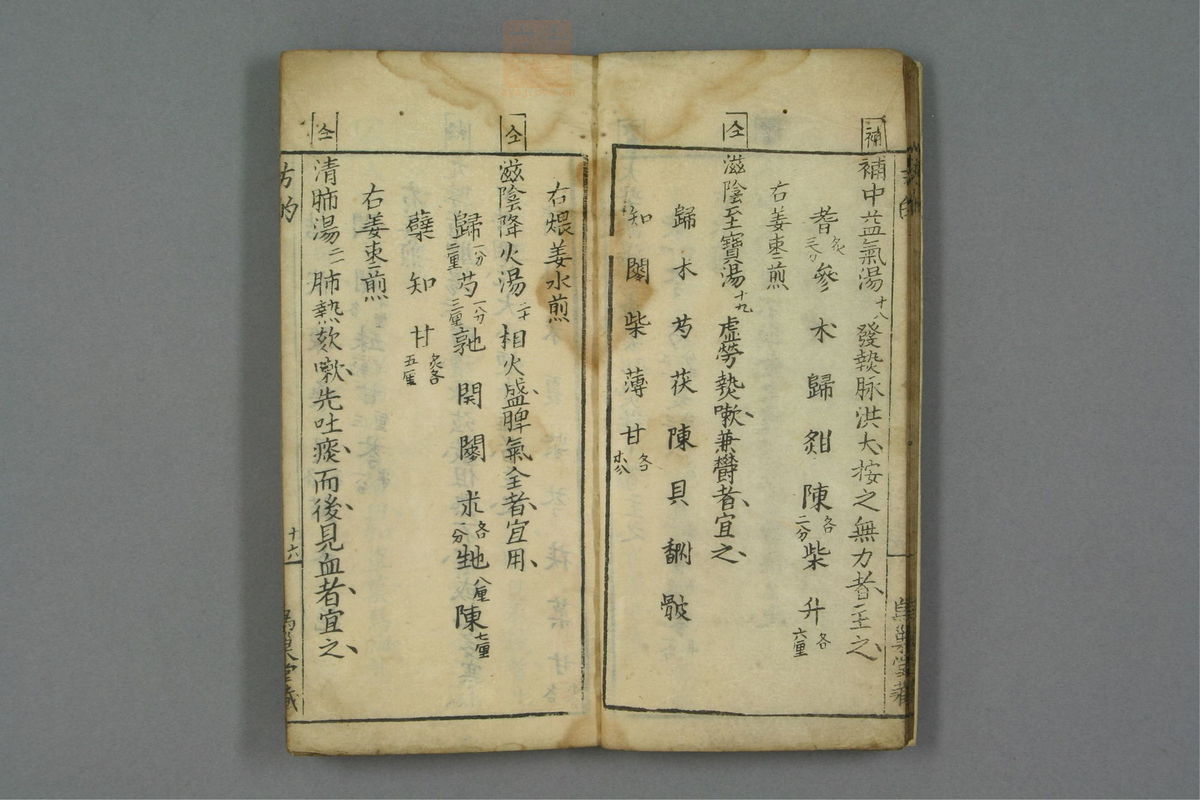 補
補中益氣湯十八 發熱脉洪大按之無力者主之
耆炙三分 參 朮 歸 𤆵 陳各二分 柴 升各六厘
右姜枣煎
仝
滋陰至寶湯十九 虛勞熱嗽兼欝者宜之
歸 朮 芍 茯 陳 貝 骸
知 柴 薄 甘各
右煨姜水煎
仝
滋陰降火湯二十 相火盛脾氣全者宜用
歸一分二厘 芍一分三厘 陳七厘
蘗 知 甘炙各五厘
右姜枣煎
仝
清肺湯二一 肺熱欬嗽先吐痰而後見血者宜之
方的
十六